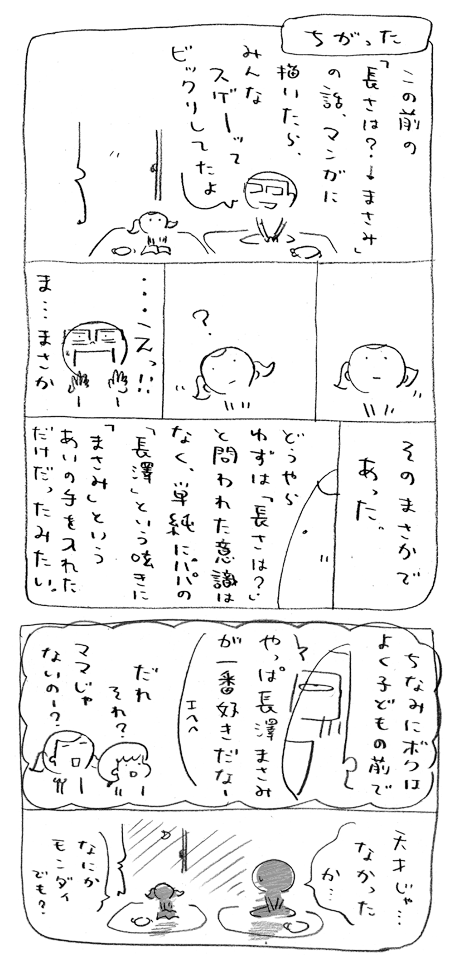 ちがった
この前の
「長さは？→まさみ」
の話、マンガに
描いたら、
みんな
スゲーって
ビックリしてたよ
？
・・・えっ!!
ま…まさか
そのまさかで
あった。
どうやら
ねずは「長さは？」
と問われた意識は
なく、単純にパパの
「長澤」という呟きに
「まさみ」という
あいの手を入れた
だけだったみたい。
ちなみにボクは
よく子どもの前で
やっぱ長澤まさみ
が一番好きだなー
エヘヘ
だれ
それ？
ママじゃ
ないのー？
天才じゃ…
なかった
か…
なにか
モンダイ
でも？